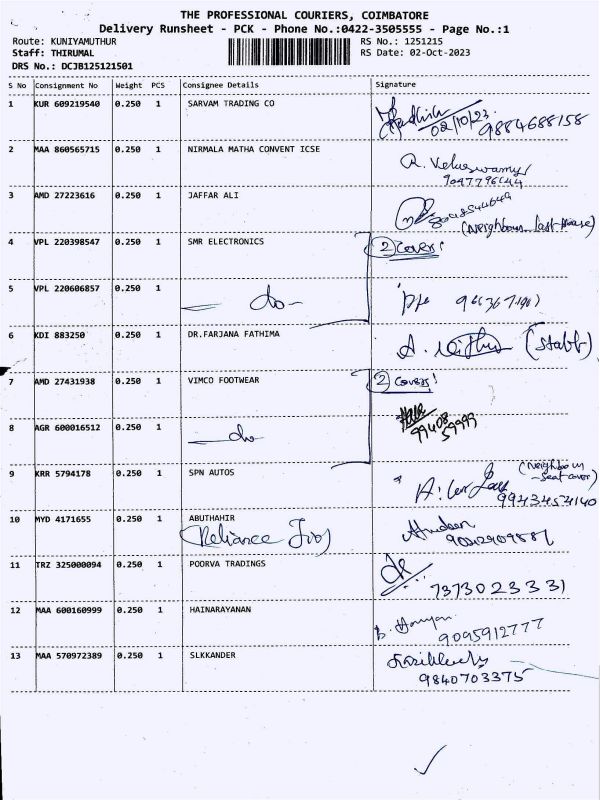 THE PROFESSIONAL COURIERS, COIMBATORE
Delivery Runsheet - PCK - Phone No.:0422-3505555 - Page No.:1
Route: KUNIYAMUTHUR RS No.: 1251215
Staff: THIRUMAL RS Date: 02-Oct-2023
DRS No.: DCJB125121501
S No Consignment No Weight PCS Consignee Details Signature
1 KUR 609219540 0.250 1 SARVAM TRADING CO
02/10/23 9884688158
2 MAA 860565715 0.250 1 NIRMALA MATHA CONVENT ICSE
R. Veluswamy
3 AMD 27223616 0.250 1 JAFFAR ALI
(Neighbour last House)
4 VPL 220398547 0.250 1 SMR ELECTRONICS 2 covers!
5 VPL 220606857 0.250 1 - do -
6 KDI 883250 0.250 1 DR.FARJANA FATHIMA
7 AMD 27431938 0.250 1 VIMCO FOOTWEAR 2 covers!
99408
59999
8 AGR 600016512 0.250 1 - do
9 KRR 5794178 0.250 1 SPN AUTOS (Neighbour
- seat cover)
9943454140
10 MYD 4171655 0.250 1 ABUTHAHIR
(Reliance Jio)
11 TRZ 325000094 0.250 1 POORVA TRADINGS
7373023331
12 MAA 600160999 0.250 1 HAINARAYANAN
9095912777
13 MAA 570972389 0.250 1 SLKKANDER
9840703375